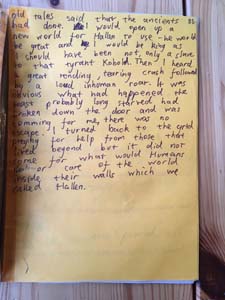 old tales said that the ancients as
had done would open up a
new world for Hallen to use - he would
be great and would be king as
I should have been not only a slave
to that tyrant Kobold. Then I heard
a great rending, tearing crush followed
by a loud inhuman roar. It was
obvious what had happened the
beast probably long starved had
broken down the door and was
comming for me, there was no
escape. I turned back to the grid
praying for help from those that
lived beyond but it did not
come for what would Humans
or care of the world
inside their walls which we
called Hallen.